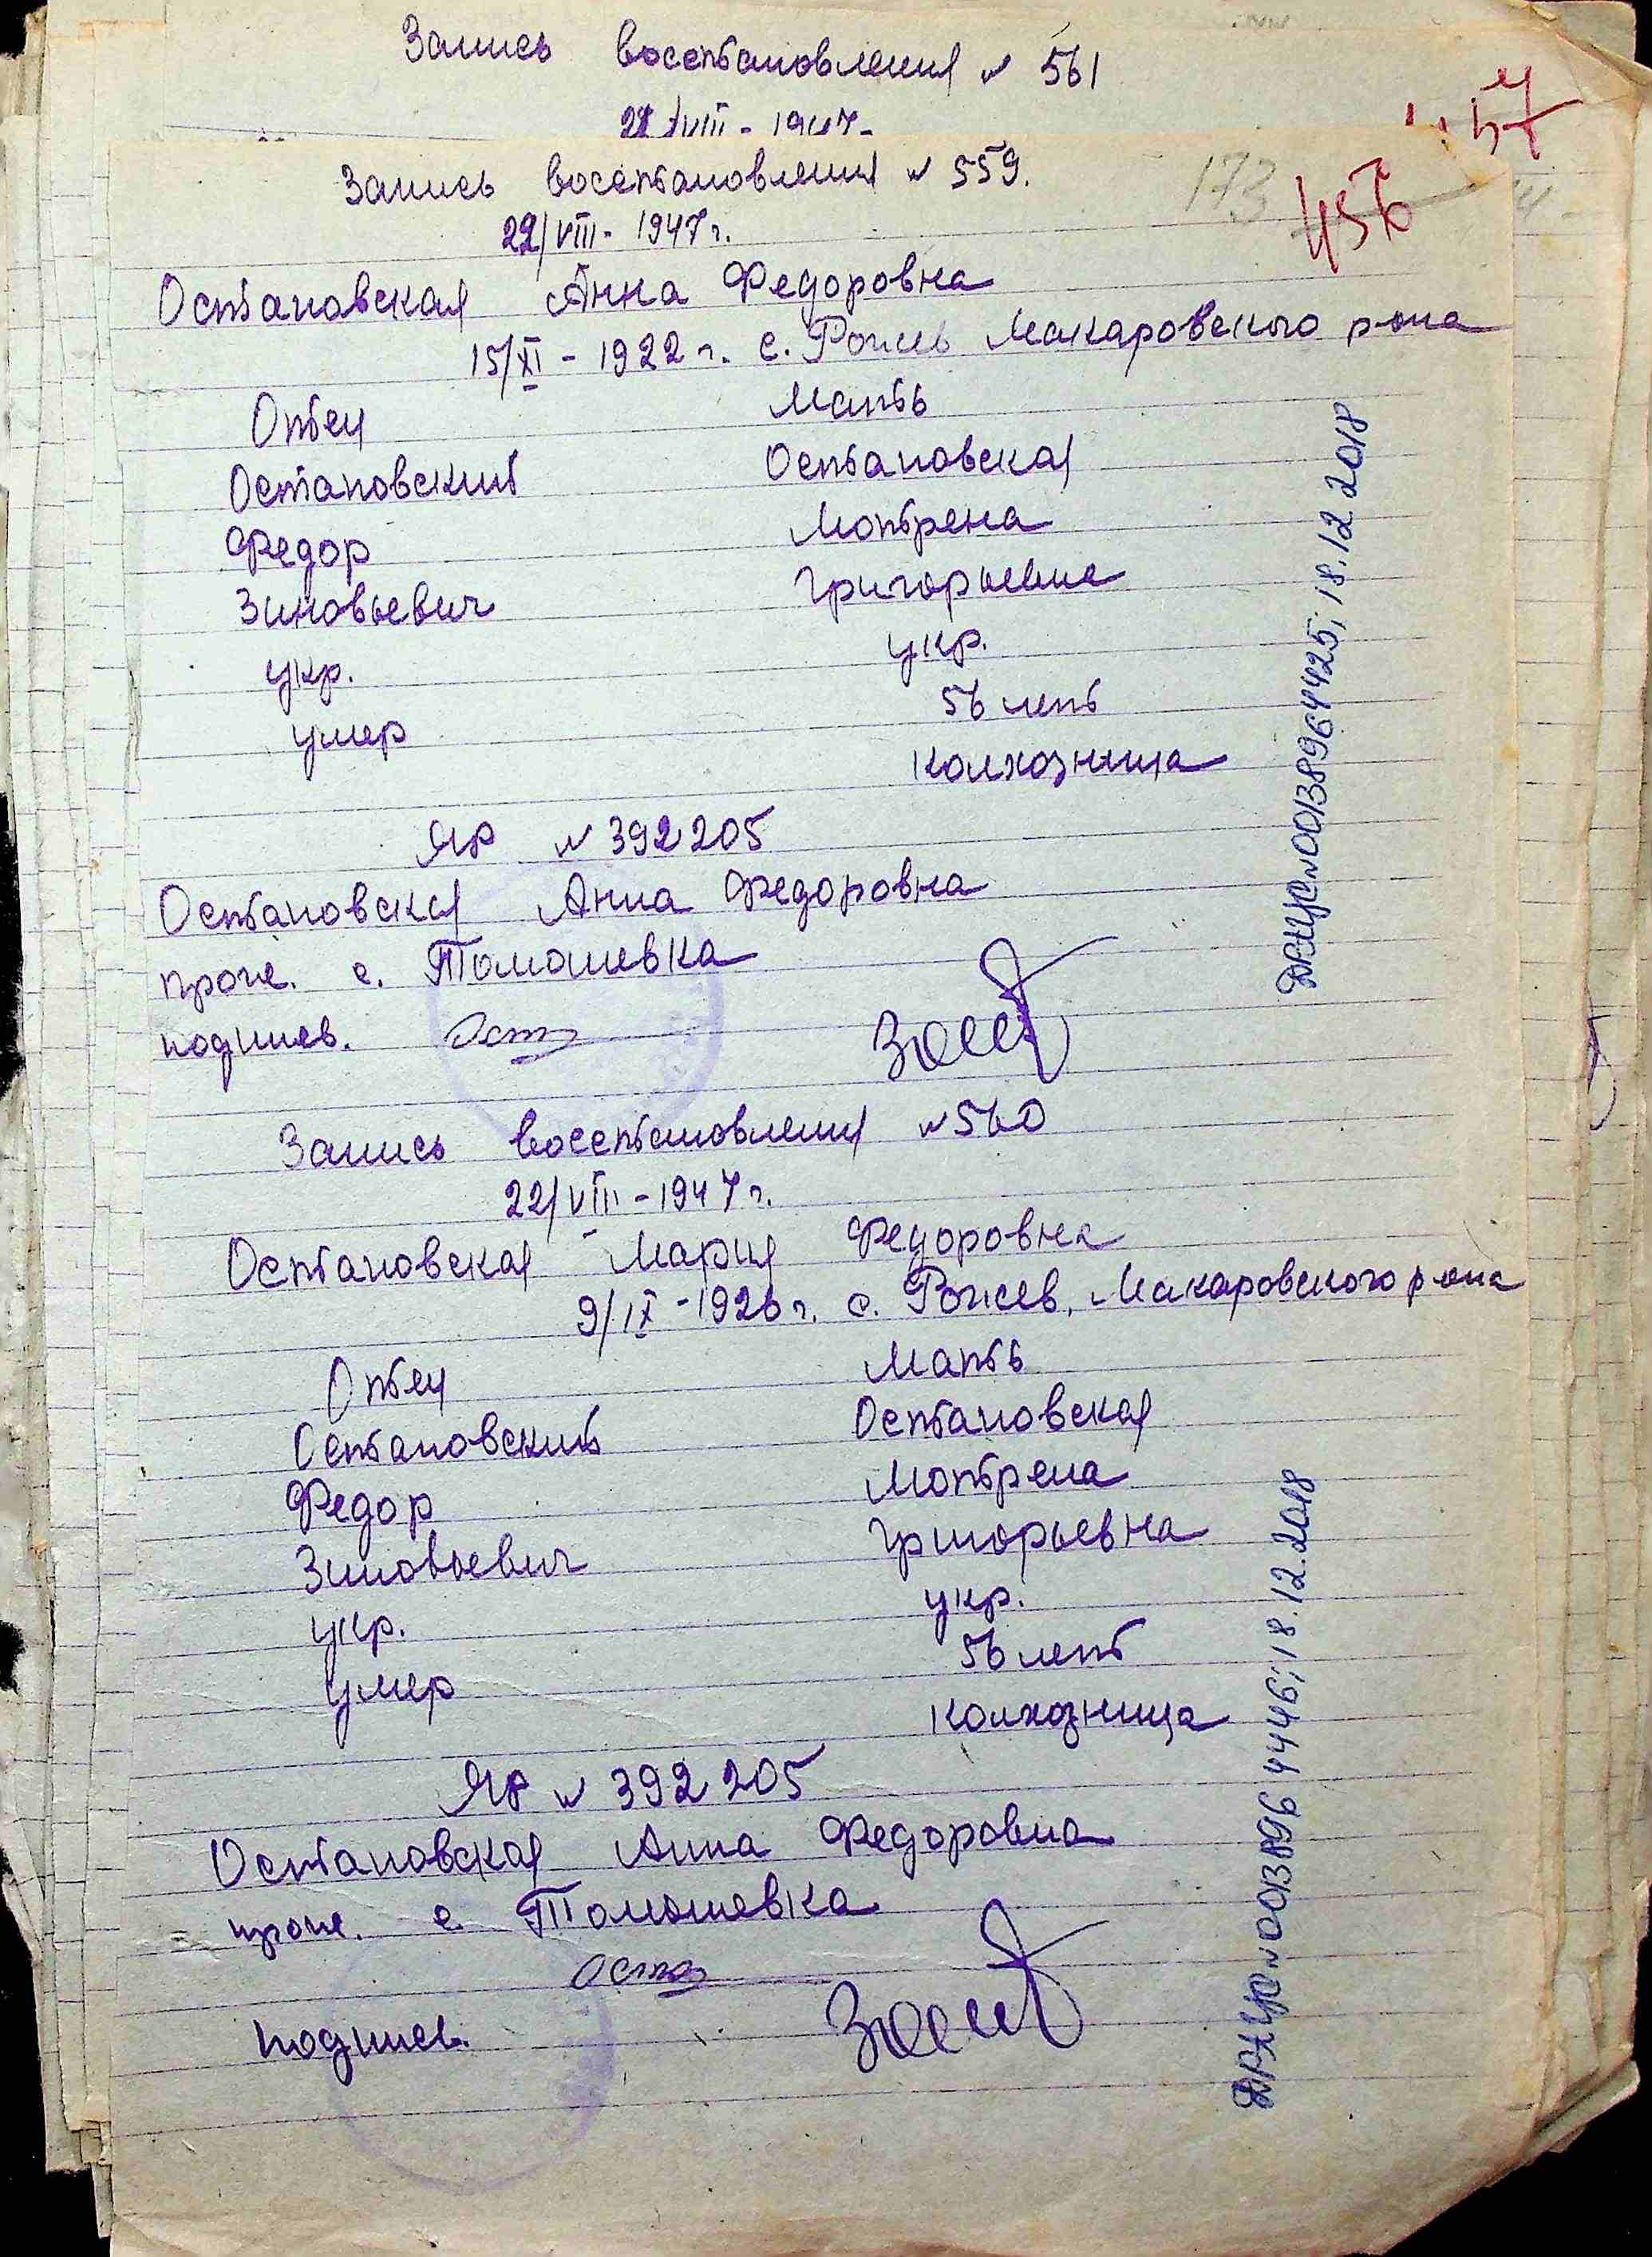 Запись восстановления № 561
22/VIII - 1947
457
Запись восстановления № 559.
173
456
22/VIII - 1947 г.
Остановская Анна Федоровна
15/XI - 1922 г. с. Рожев Макаровского р-она
Отец Мать
Остановский Остановская
Федор Мотрена
Зиновьевич Григорьевна
укр. укр.
умер 56 лет
колхозница
ЯР № 392205
Остановская Анна Федоровна
прож. с. Томашевка
подпись. Оста
ДРАЦС № 00138964425; 18.12.2018
Запись восстановления № 560
22/VIII - 1947 г.
Остановская Мария Федоровна
9/IX - 1926 г. с. Рожев, Макаровского р-она
Отец Мать
Остановский Остановская
Федор Мотрена
Зиновьевич Григорьевна
укр. укр.
умер 56 лет
колхозница
ЯР № 392205
Остановская Анна Федоровна
прож. с. Томашевка
Оста
подпись.
ДРАЦС № 00138964446; 18.12.2018